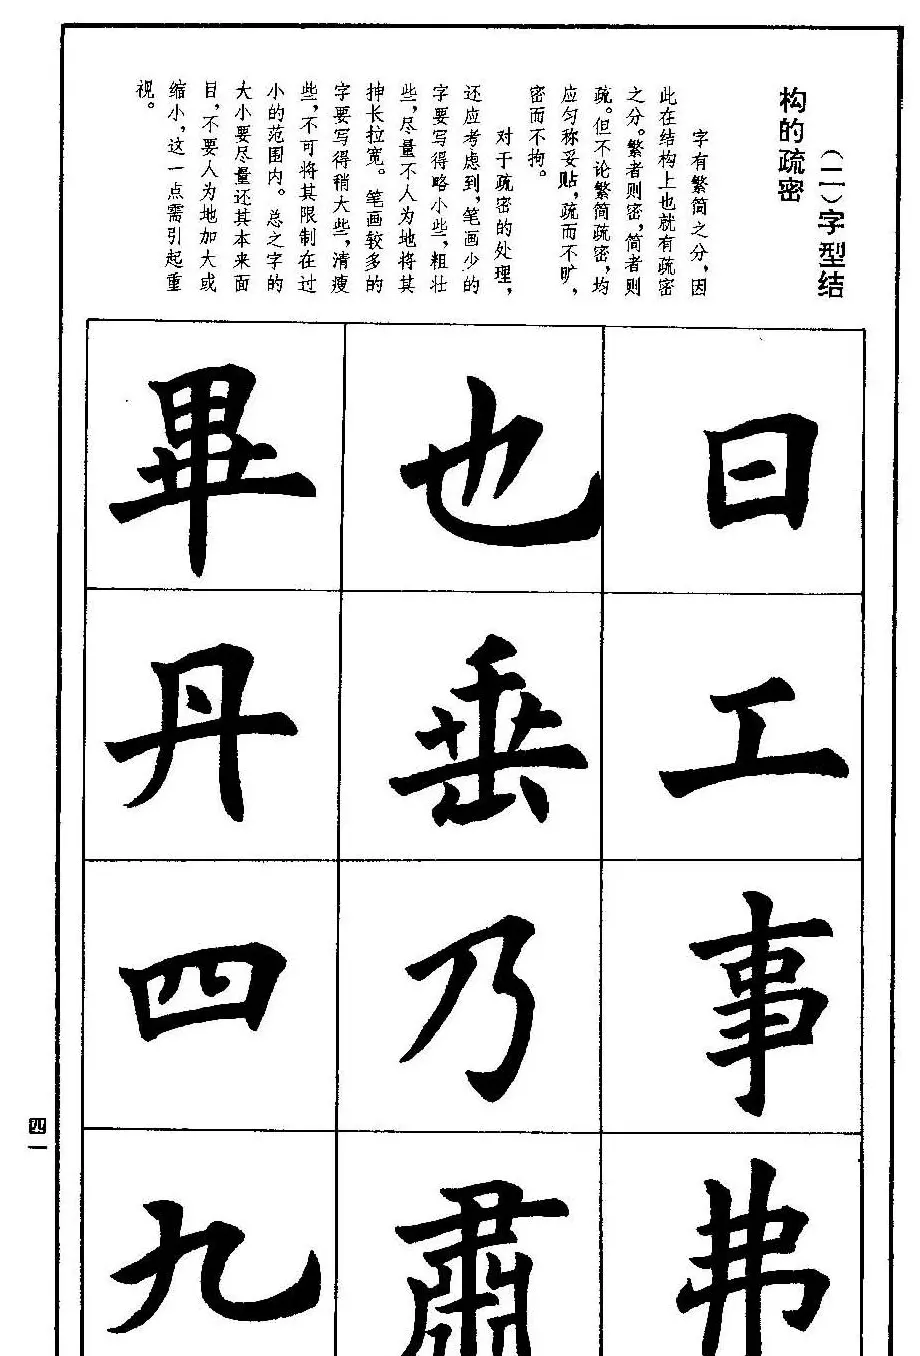 (二)字型结
构的疏密
字有繁简之分,因
此在结构上也就有疏密
之分。繁者则密,简者则
疏。但不论繁简疏密,均
应匀称妥贴,疏而不旷,
密而不拘。
对于疏密的处理,
还应考虑到,笔画少的
字要写得略小些,粗壮
些,尽量不人为地将其
抻长拉宽。笔画较多的
字要写得稍大些,清瘦
些,不可将其限制在过
小的范围内。总之字的
大小要尽量还其本来面
目,不要人为地加大或
缩小,这一点需引起重
视。
日
工
事
弗
也
垂
乃
肅
畢
丹
四
九
四一